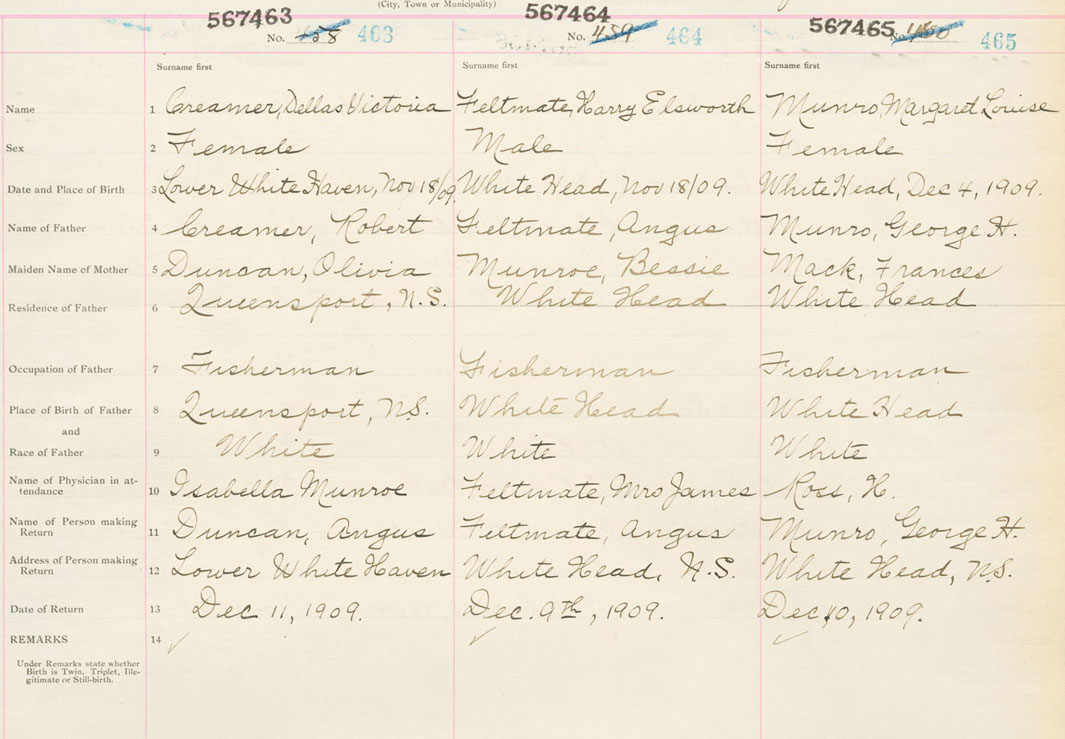 (City, Town or Municipality)
567463 567464 567465
No. 458 463 No. 459 464 No. 460 465
Surname first Surname first Surname first
Name 1 Creamer, Dellas Victoria Feltmate, Harry Elsworth Munro, Margaret Louise
Sex 2 Female Male Female
Date and Place of Birth 3 Lower White Haven, Nov 18/09. White Head, Nov 18/09. White Head, Dec 4, 1909.
Name of Father 4 Creamer, Robert Feltmate, Angus Munro, George H.
Maiden Name of Mother 5 Duncan, Olivia Munroe, Bessie Mack, Frances
Residence of Father 6 Queensport, N.S. White Head White Head
Occupation of Father 7 Fisherman Fisherman Fisherman
Place of Birth of Father 8 Queensport, N.S. White Head White Head
and
Race of Father 9 White White White
Name of Physician in at-
tendance 10 Isabella Munroe Feltmate, Mrs James Ross, H.
Name of Person making
Return 11 Duncan, Angus Feltmate, Angus Munro, George H.
Address of Person making
Return 12 Lower White Haven White Head, N.S. White Head, N.S.
Date of Return 13 Dec 11, 1909. Dec. 9th, 1909. Dec 10, 1909.
REMARKS 14
Under Remarks state whether
Birth is Twin, Triplet, Ille-
gitimate or Still-birth.